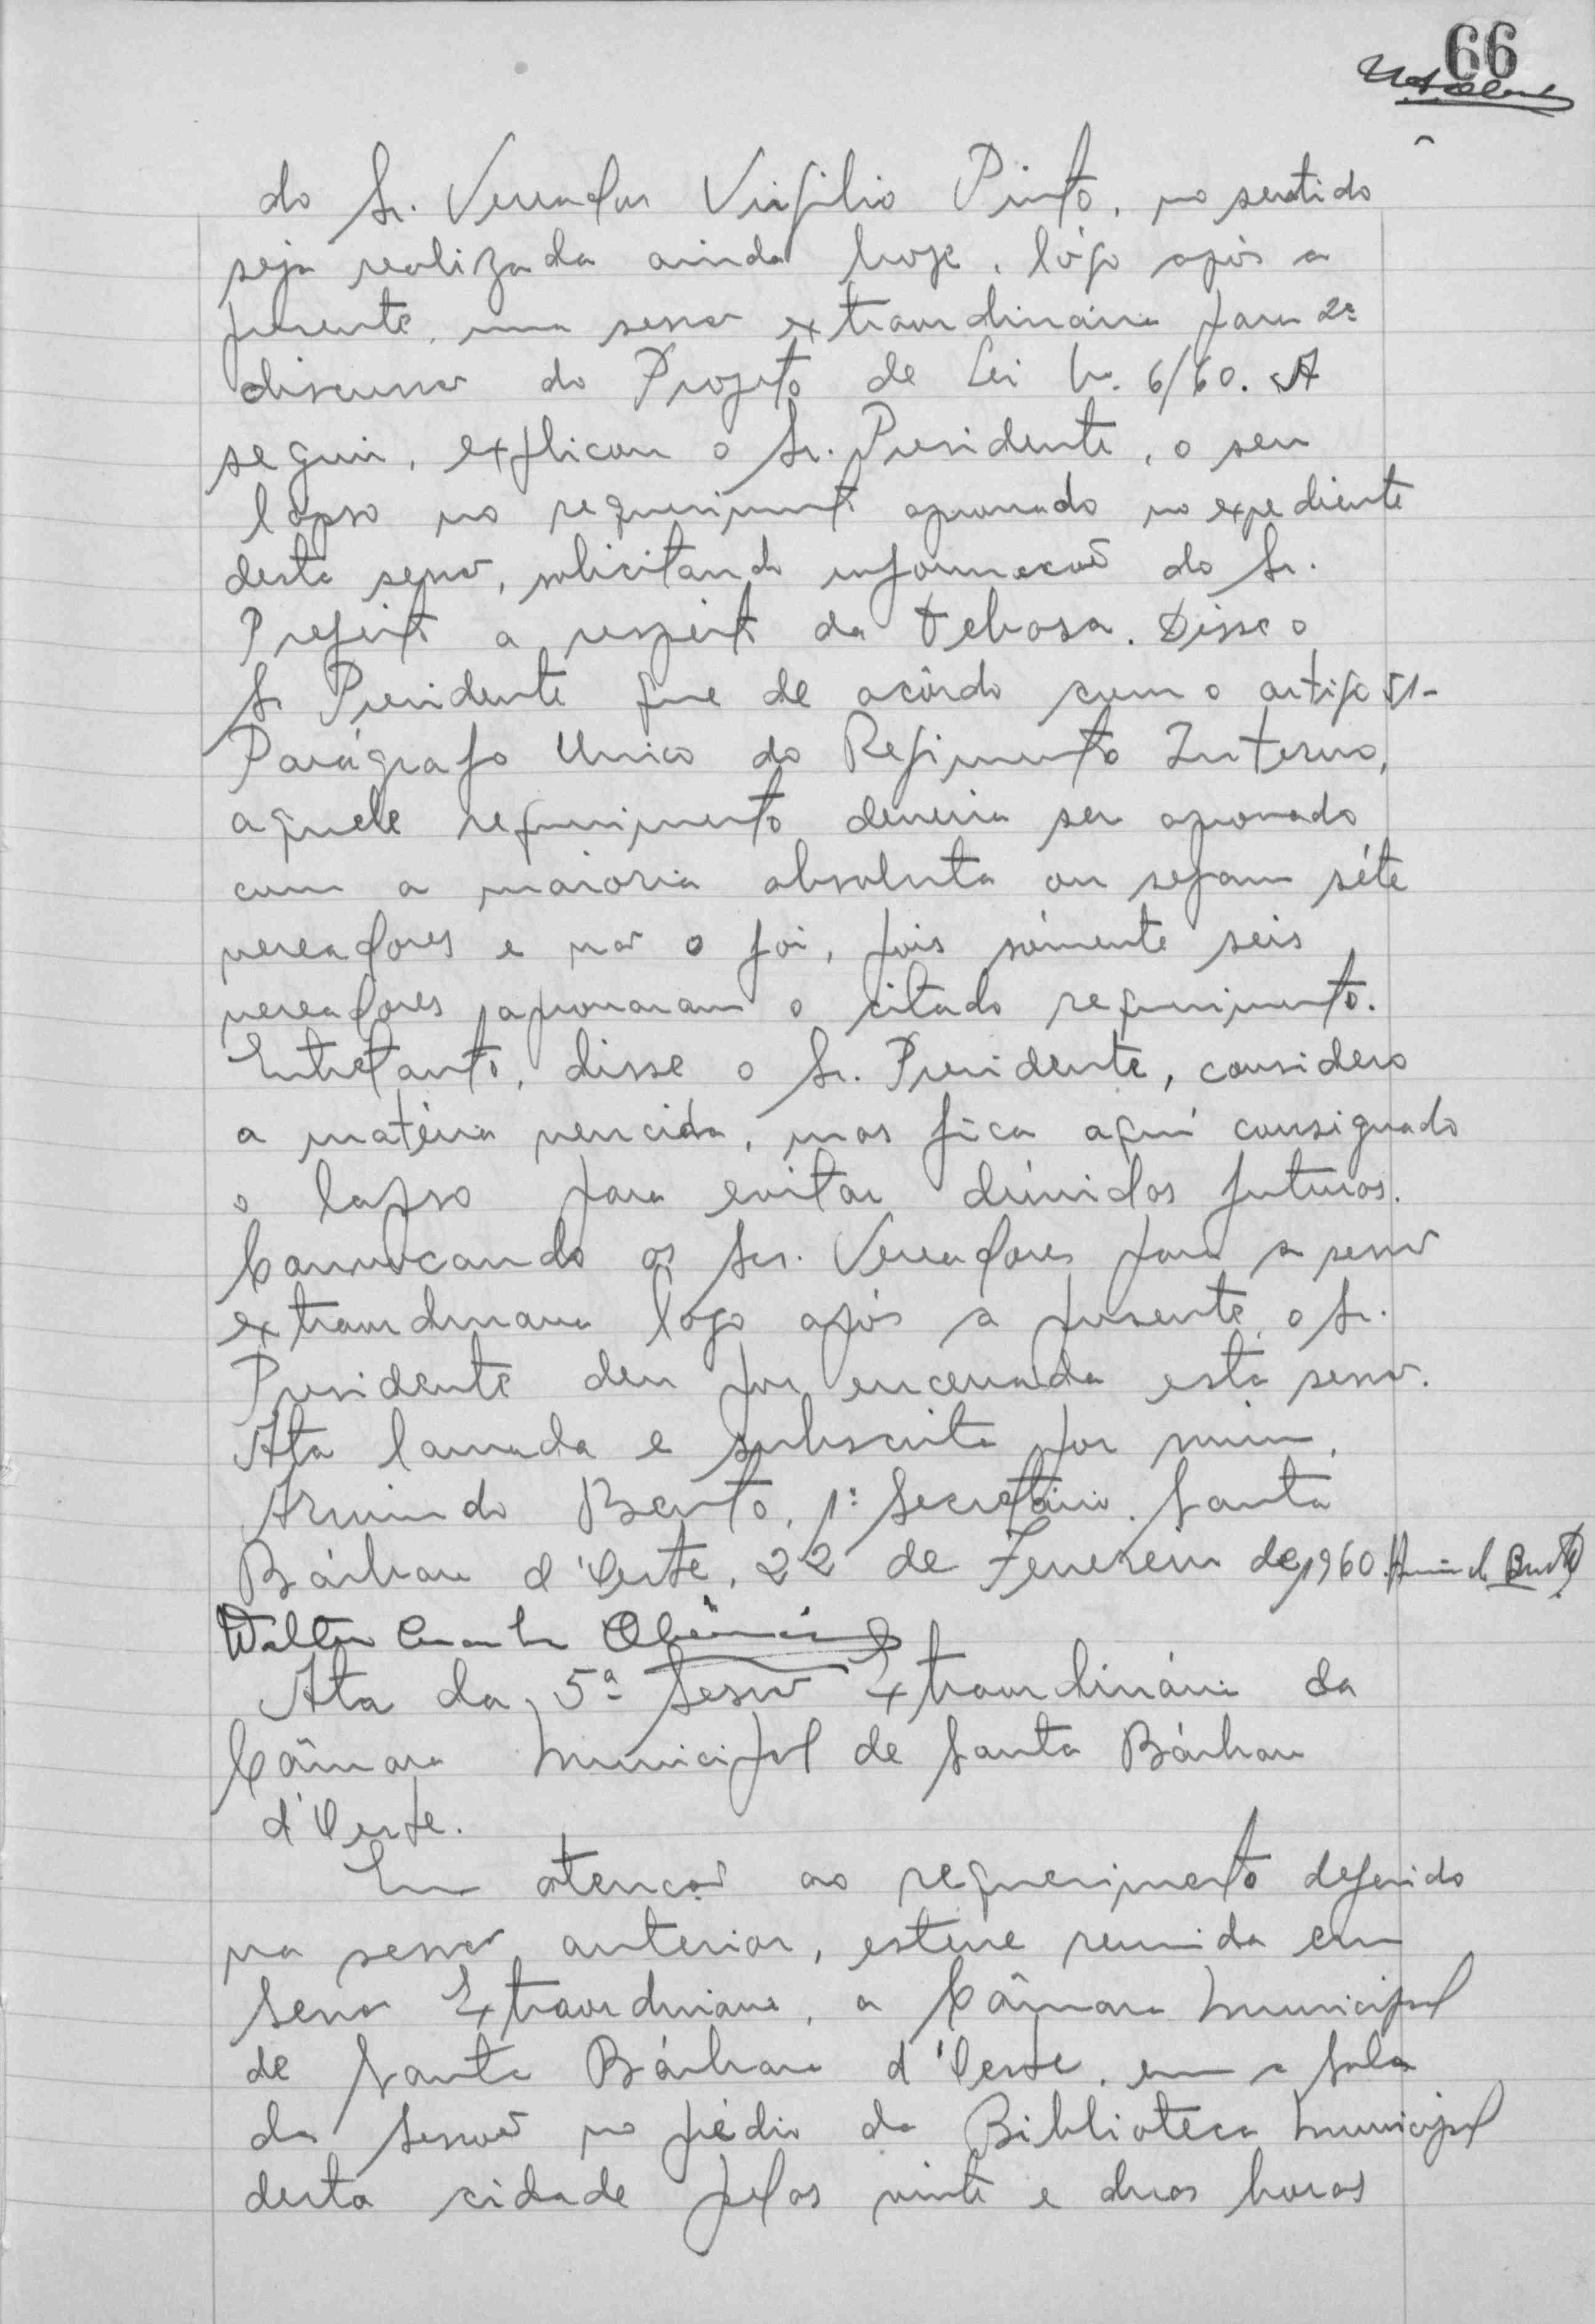 66
do Sr. Vereador Virgilio Pinto, no sentido
seja realizada ainda hoje, lógo após a
presente, uma sessão extraordinária para 2ª
discussão do Projeto de Lei Nº. 6/60. A
seguir, explicou o Sr. Presidente, o seu
lapso no requerimento aprovado no expediente
desta sessão, solicitando informações do Sr.
Prefeito a respeito da Tebasa. Disse o
Sr Presidente que de acôrdo com o artigo 51-
Parágrafo Unico do Regimento Interno,
aquele requerimento deveria ser aprovado
com a maioria absoluta ou sejam séte
vereadores e não o foi, pois sómente seis
vereadores aprovaram o citado requerimento.
Entretanto, disse o Sr. Presidente, considero
a matéria vencida, mas fica aquí consignado
o lapso para evitar dúvidas futuras.
Convocando os Srs. Vereadores para a sessão
extraordinaria logo após a presente, o Sr.
Presidente deu por encerrada esta sessão.
Ata lavrada e subscrita por mim,
Armindo Bento, 1º Secretário. Santa
Bárbara d'Oeste, 22 de Fevereiro de 1960. Armindo Bento
Walter
Ata da 5ª Sessão Extraordinária da
Câmara Municipal de Santa Bárbara
d'Oeste.
Em atenção ao requerimento deferido
na sessão anterior, esteve reunida em
Sessão Extraordinaria, a Câmara Municipal
de Santa Bárbara d'Oeste, em a Sala
da Sessões no prédio da Biblioteca Municipal
desta cidade pelas vinte e duas horas